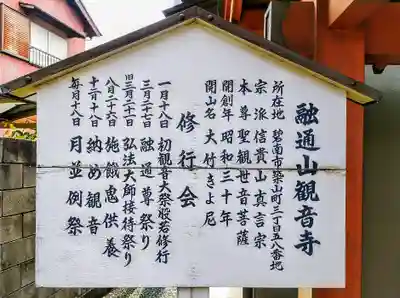 融通山観音寺
所在地 碧南市築山町三丁目五八番地
宗派 信貴山真言宗
本尊 聖観世音菩薩
開創年 昭和三十年
開山名 大竹きよ尼
修行会
一月十八 初観音大祭般若修行
三月二十七 融通尊祭り
旧三月二十一 弘法大師接待祭り
八月二十六 施餓鬼供養
十二月十八 納め観音
毎月十八日 月並例祭